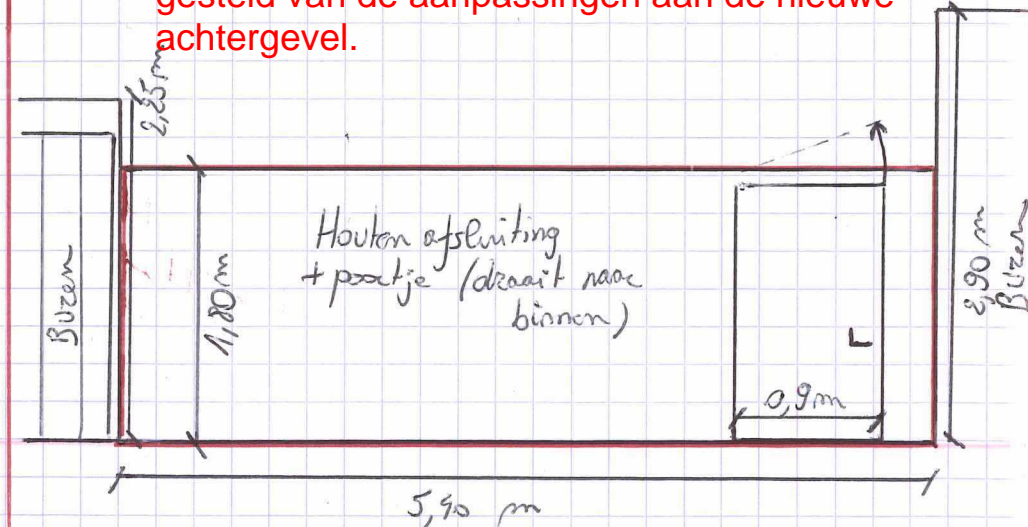 gesteld van de aanpassingen aan de nieuwe
achtergevel.
2,25 m
Houten afsluiting
+ poortje (draait naar
binnen)
Buren
1,80 m
0,9 m
2,90 m
Buren
5,40 m